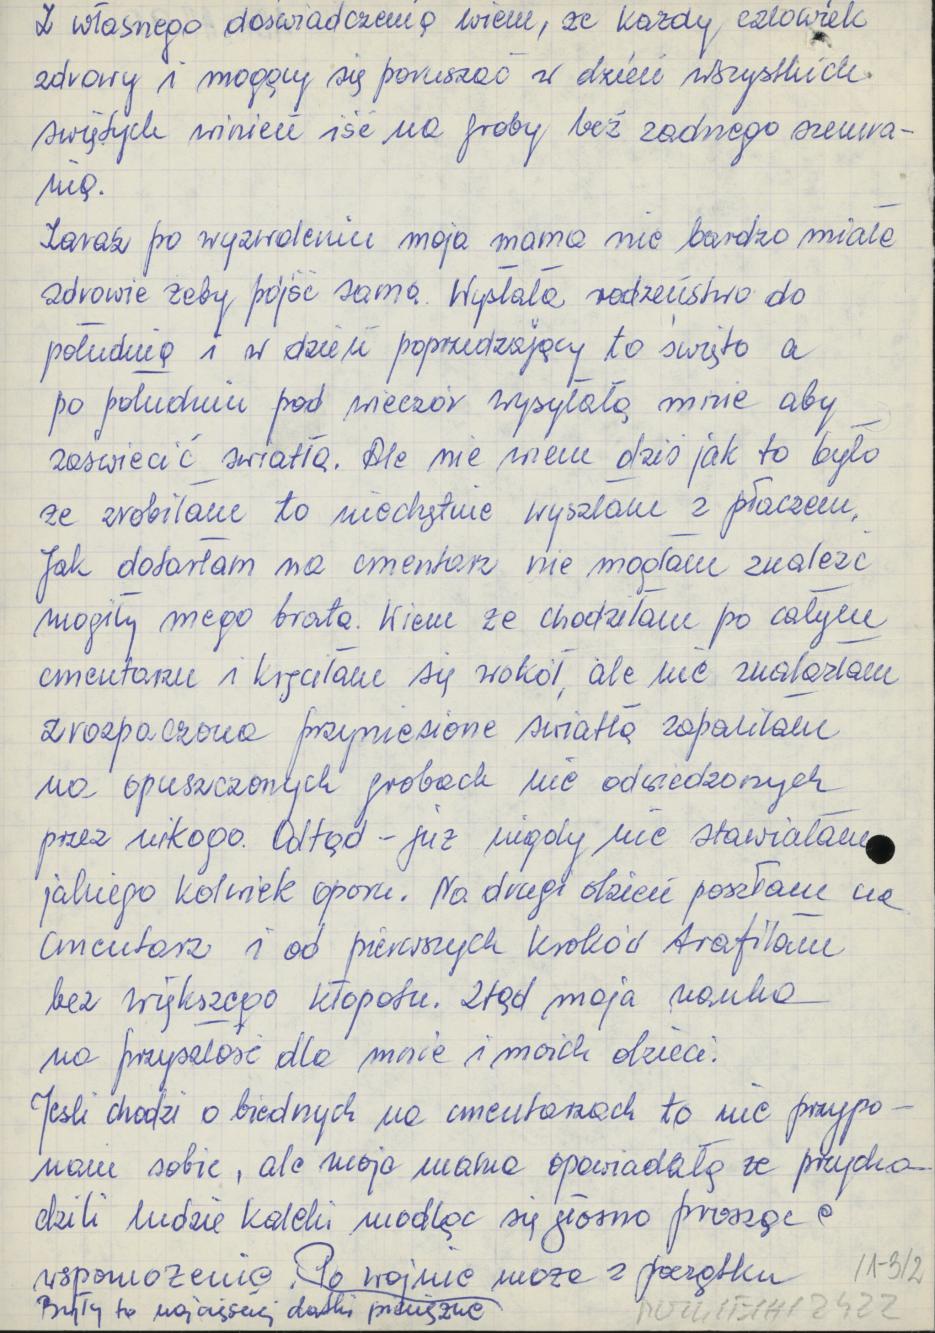 Z własnego doświadczenia wiem, że każdy człowiek
zdrowy i mogący się poruszać w dzień wszystkich
świętych winien iść na groby bez żadnego szemra-
nia.
Zaraz po wyzwoleniu moja mama nie bardzo miała
zdrowie żeby pójść sama. Wysłała rodzeństwo do
południa i w dzień poprzedzający to święto a
po południu pod wieczór wysyłała mnie aby
zaświecić światła. Ale nie wiem dziś jak to było
że zrobiłam to niechętnie wyszłam z płaczem.
Jak dotarłam na cmentarz nie mogłam znaleźć
mogiły mego brata. Wiem że chodziłam po całym
cmentarzu i kręciłam się wokół, ale nie znalazłam
zrozpaczona przyniesione światła zapaliłam
na opuszczonych grobach nie odwiedzanych
przez nikogo. Odtąd – już nigdy nie stawiałam
jakiego kolwiek oporu. Na drugi dzień poszłam na
cmentarz i od pierwszych kroków trafiłam
bez większego kłopotu. Stąd moja nauka
na przyszłość dla mnie i moich dzieci.
Jeśli chodzi o biednych na cmentarzach to nie przypo-
nam sobie, ale moja mama opowiadała że przycho-
dzili ludzie kaleki modląc się głośno prosząc o
wspomożenie. Po wojnie może z początku
Były to najczęściej datki pieniężne
11-3/2
2422